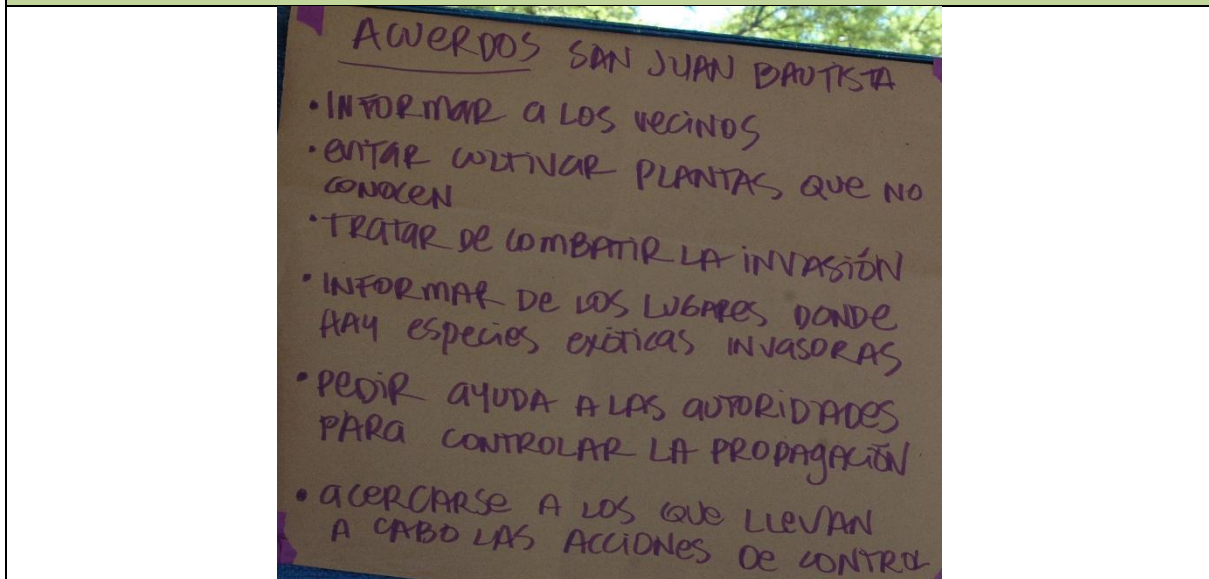 ACUERDOS SAN JUAN BAUTISTA
• INFORMAR A LOS VECINOS
• EVITAR CULTIVAR PLANTAS QUE NO
CONOCEN
• TRATAR DE COMBATIR LA INVASIÓN
• INFORMAR DE LOS LUGARES DONDE
HAY ESPECIES EXÓTICAS INVASORAS
• PEDIR AYUDA A LAS AUTORIDADES
PARA CONTROLAR LA PROPAGACIÓN
• ACERCARSE A LOS QUE LLEVAN
A CABO LAS ACCIONES DE CONTROL